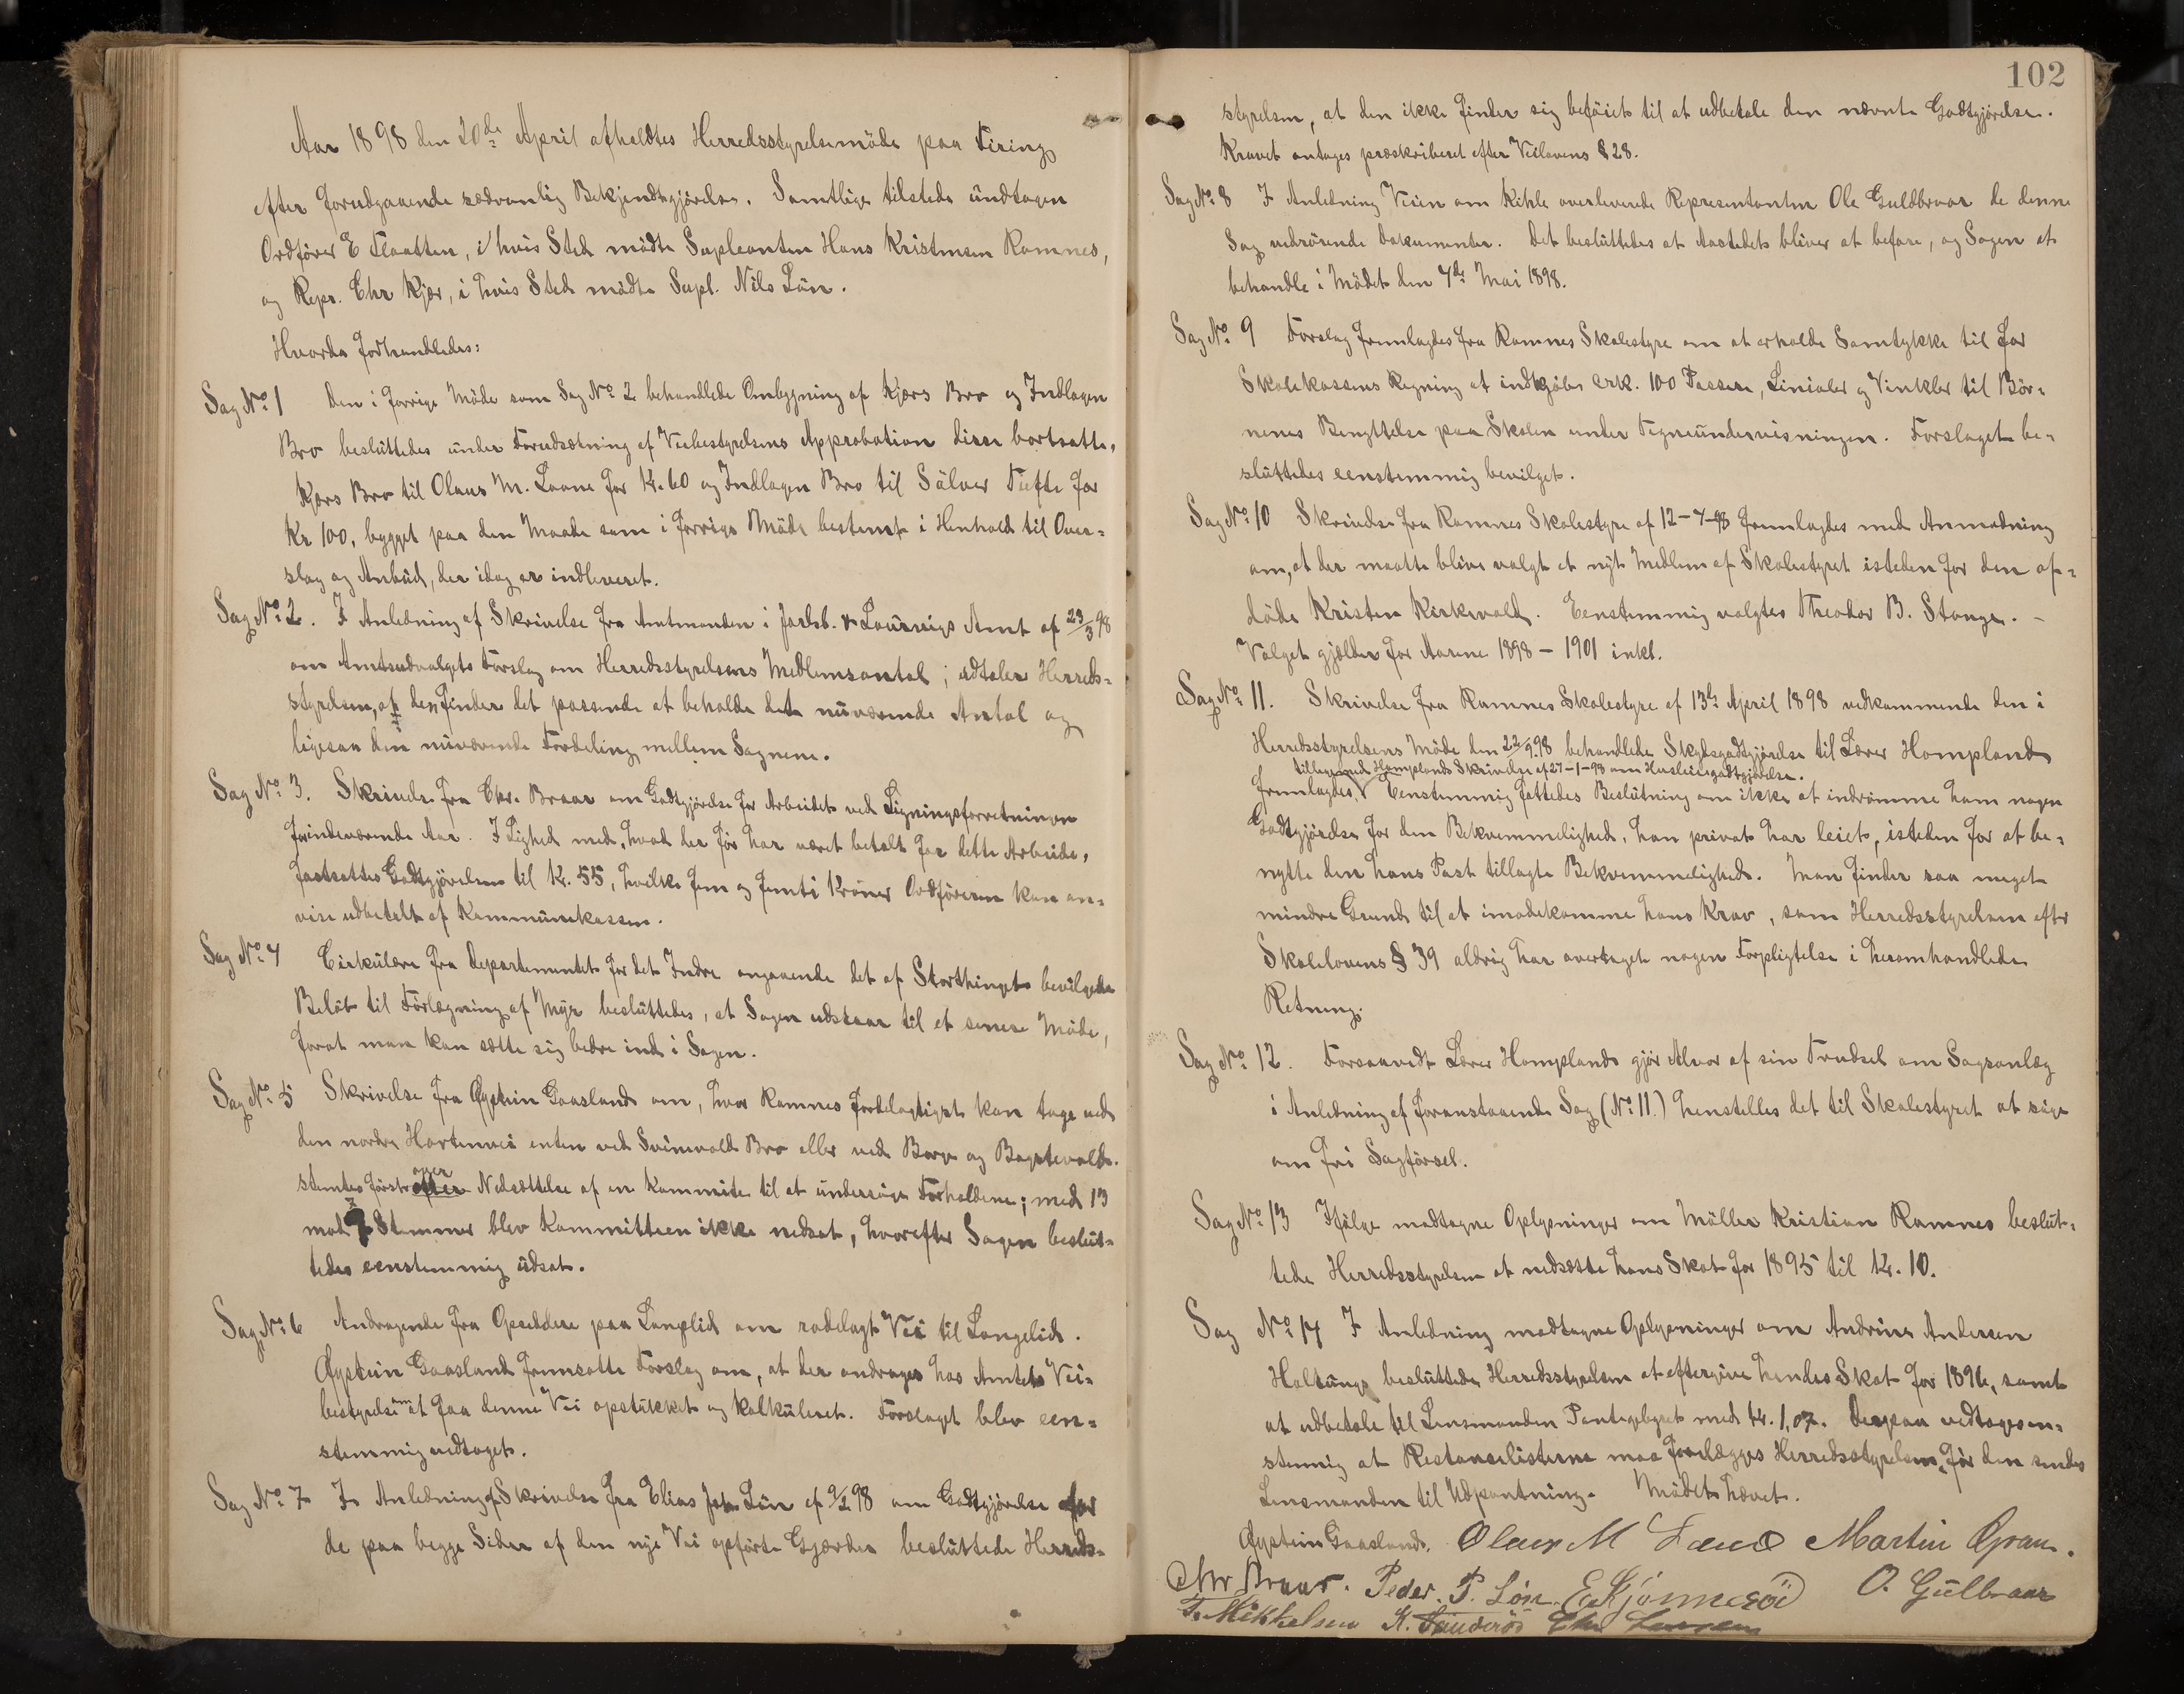 Aar 1898 den 20de April afholdtes Herredsstyrelsemöde paa Firing
efter forudgaaende sædvanlig Bekjendtgjörelse. Samtlige tilstede undtagen
Ordförer E Flaatten, i hvis Sted mödte Supleanten Hans Kristensen Ramnes,
og Repr. Chr Kjær, i hvis Sted mödte Supl. Nils Lön.
Hvorda forhandledes:
Sag No. 1 Den i forrige Möde som Sag No. 2 behandlede Ombygning af Kjærs Bro og Indlagen
Bro besluttedes under Forudsætning af Veibestyrelsens Approbation disse bortsatte,
Kjærs Bro til Olaus M. Laane for Kr. 60 og Indlagen Bro til Sölver Tufte for
Kr 100, bygget paa den Maade som i forrige Möde bestemt i Henhold til Over-
slag og Anbud, der idag er indleveret.
Sag No. 2. I Anledning af Skrivelse fra Amtmanden i Jarlsb. & Laurvigs Amt af 23/3 98
om Amtsudvalgets Forslag om Herredsstyrelsens Medlemsantal; udtaler Herreds-
styrelsen, at den finder det passende at beholde det nuværende Antal og
ligesaa den nuværende Fordeling mellem Sognene.
Sag No. 3. Skrivelse fra Chr. Braar om Godtgjörelse for Arbeidet ved Ligningsforretningen
forindeværende Aar. I Lighed med, hvad der för har været betalt for dette Arbeide,
fastsattes Godtgjörelsen til Kr. 55, hvilke fem og femti Kroner Ordföreren kan an-
vise udbetalt af Kommunekassen.
Sag No. 4 Cirkulære fra Departementet for det Indre angaaende det af Storthinget bevilgede
Belöb til Forlægning af Myr besluttedes, at Sagen udstaar til et senere Möde,
forat man kan sætte sig bedre ind i Sagen.
Sag No. 5 Skrivelse fra Øystein Gaasland om, hvor Ramnes fordelagtigst kan tage ved
den nordre Hortenvei enten ved Svinevold Bro eller ved Borge og Bogstevold.
stemtes först over Nedsættelse af en Kommite til at undersöge Forholdene; med 13
mod 7 Stemmer blev Kommitteen ikke nedsat, hvorefter Sagen beslut-
tedes eenstemmig udsat.
Sag No. 6 Andragende fra Opsiddere paa Langlid om rodelagt Vei til Langelid.
Øystein Gaasland fremsatte Forslag om, at der andrages hos Amtets Vei-
bestyrelse om at faa denne Vei opstukket og kalkuleret. Forslaget blev een-
stemmig vedtaget.
Sag No. 7 I Anledning af Skrivelse fra Elias Joh. Lön af 9/2 98 om Godtgjörelse for
de paa begge Sider af den nye Vei opförte Gjærder besluttede Herreds-
102
styrelsen, at den ikke finder sig beföiet til at udbetale den nævnte Godtgjörelse.
Kravet antages præskriberet efter Veilovens § 28.
Sag No. 8 I Anledning Veien om Kihle overleverede Representanten Ole Guldbraar de denne
Sag vedrörende Dokumenter. Det besluttedes at Aastedet bliver at befare, og Sagen at
behandle i Mödet den 7de Mai 1898.
Sag No. 9 Forslag fremlagdes fra Ramnes Skolestyre om at erholde Samtykke til for
Skolekassens Regning at indkjöbe cirk. 100 Passere, Linialer og Vinkler til Bör-
nenes Benyttelse paa Skolen under Tegneundervisningen. Forslaget be-
sluttedes eenstemmig bevilget.
Sag No. 10 Skrivelse fra Ramnes Skolestyre af 12-4-98 fremlagdes med Anmodning
om, at der maatte blive valgt et nyt Medlem af Skolestyret isteden for den af-
döde Kristen Kirkevold. Eenstemmig valgtes Theodor B. Stange. -
Valget gjælder for Aarene 1898 - 1901 inkl.
Sag No. 11. Skrivelse fra Ramnes Skolestyre af 13de April 1898 vedkommende den i
Herredsstyrelsens Möde den 22/9.98 behandlede Skydsgodtgjörelse til Lærer Hompland
tilligemed Homplands Skrivelse af 27-1-98 om Husleiegodtgjörelse.
fremlagdes. Eenstemmig fattedes Beslutning om ikke at indrömme ham nogen
Godtgjörelse for den Bekvemmelighed, han privat har leiet, isteden for at be-
nytte den hans Post tillagte Bekvemmelighed. Man finder saa meget
mindre Grund til at imödekomme hans Krav, som Herredsstyrelsen efter
Skolelovens § 39 aldrig har overtaget nogen Forpligtelse i heromhandlede
Retning.
Sag No. 12. Forsaavidt Lærer Hompland gjör Alvor af sin Trudsel om Sagsanlæg
i Anledning af foranstaaende Sag (No. 11.) henstilles det til Skolestyret at söge
om fri Sagförsel.
Sag No. 13 Ifölge modtagne Oplysninger om Möller Kristian Ramnes beslut-
tede Herredsstyrelsen at nedsætte hans Skat for 1895 til Kr. 10.
Sag No. 14 I Anledning modtagne Oplysninger om Andrine Andersen
Holtunge besluttede Herredsstyrelsen at eftergive hendes Skat for 1896, samt
at udbetale til Lensmanden Pantegebyret med Kr. 1,07. Derpaa vedtoges en-
stemig at Restanselisterne maa forelægges Herredsstyrelsen, för den sendes
Lensmanden til Udpantning. Mödet hævet.
Øystein Gaasland. Olaus M Laane Martin Gran.
Chr Braar. Peder. P. Lön. E Kjönneröd O. Gulbraar
T. Mikkelsen K. Sunderöd Chr Larsen